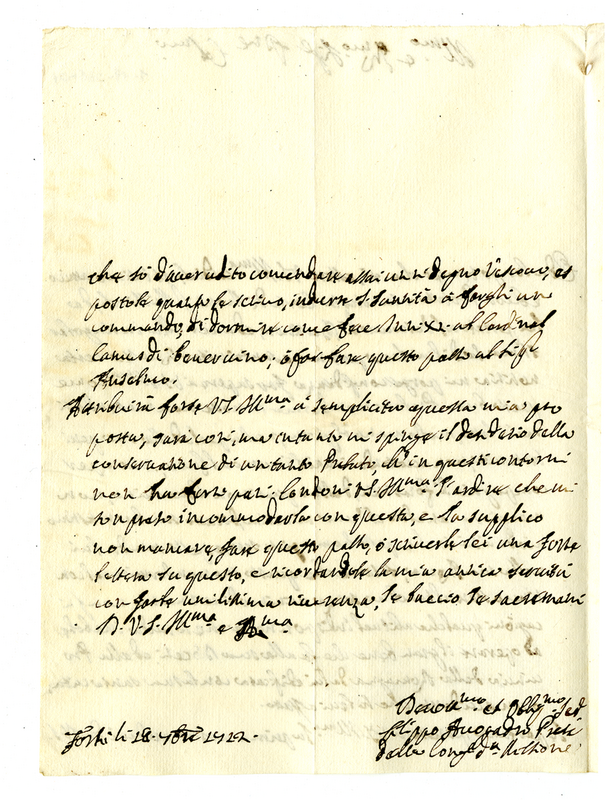 che si d'aver udito comendare assai un si degno Vescovo, es
postole quanto le scrivo, indurre S. Santità à fargli un
commando, di dormire come fece Inn: XI. al Cardinal
Camus di ; ò far fare questo passo al Sigr
Anselmo.
Attribuirà forse V.S. Illma à semplicità questa mia pro
posta, sarà così, ma intanto mi spinge il desiderio della
conservatione di un tanto Prelato, ch' in questi contorni
non ha forse pari. Condoni V.S. Illma l'ardire che mi
son preso incommodarla con questa, e la supplico
non mancare, fare questo passo, ò scriverle lei una forte
lettera su questo, e ricordandole la mia antica servitù
con farle umilissima riverenza, le baccio le sacre mani
D. V. S. Illma e Rma
Devotmo et Obligmo Sed
Filippo Avogadro Prete
della Congne da Missione
Forlì li 28. 1727.